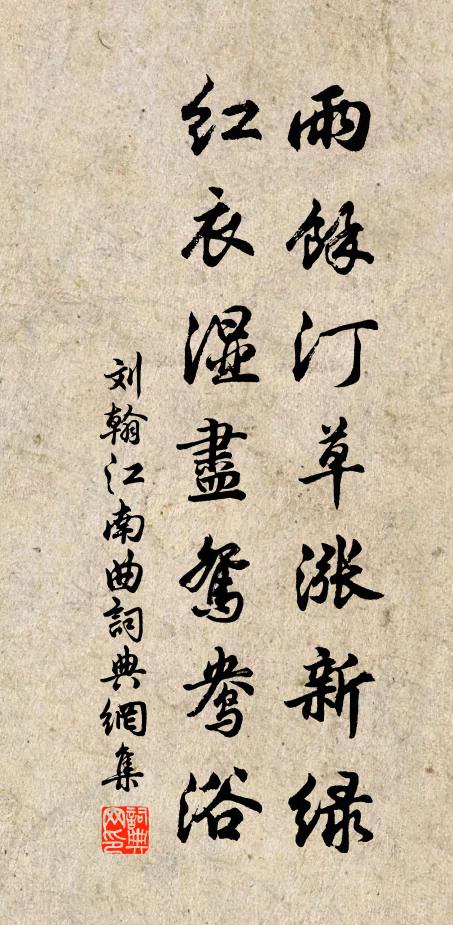 雨餘汀草漲新緑
红衣濕盡鴛鴦浴
刘翰江南曲詞典網集
詞典网印